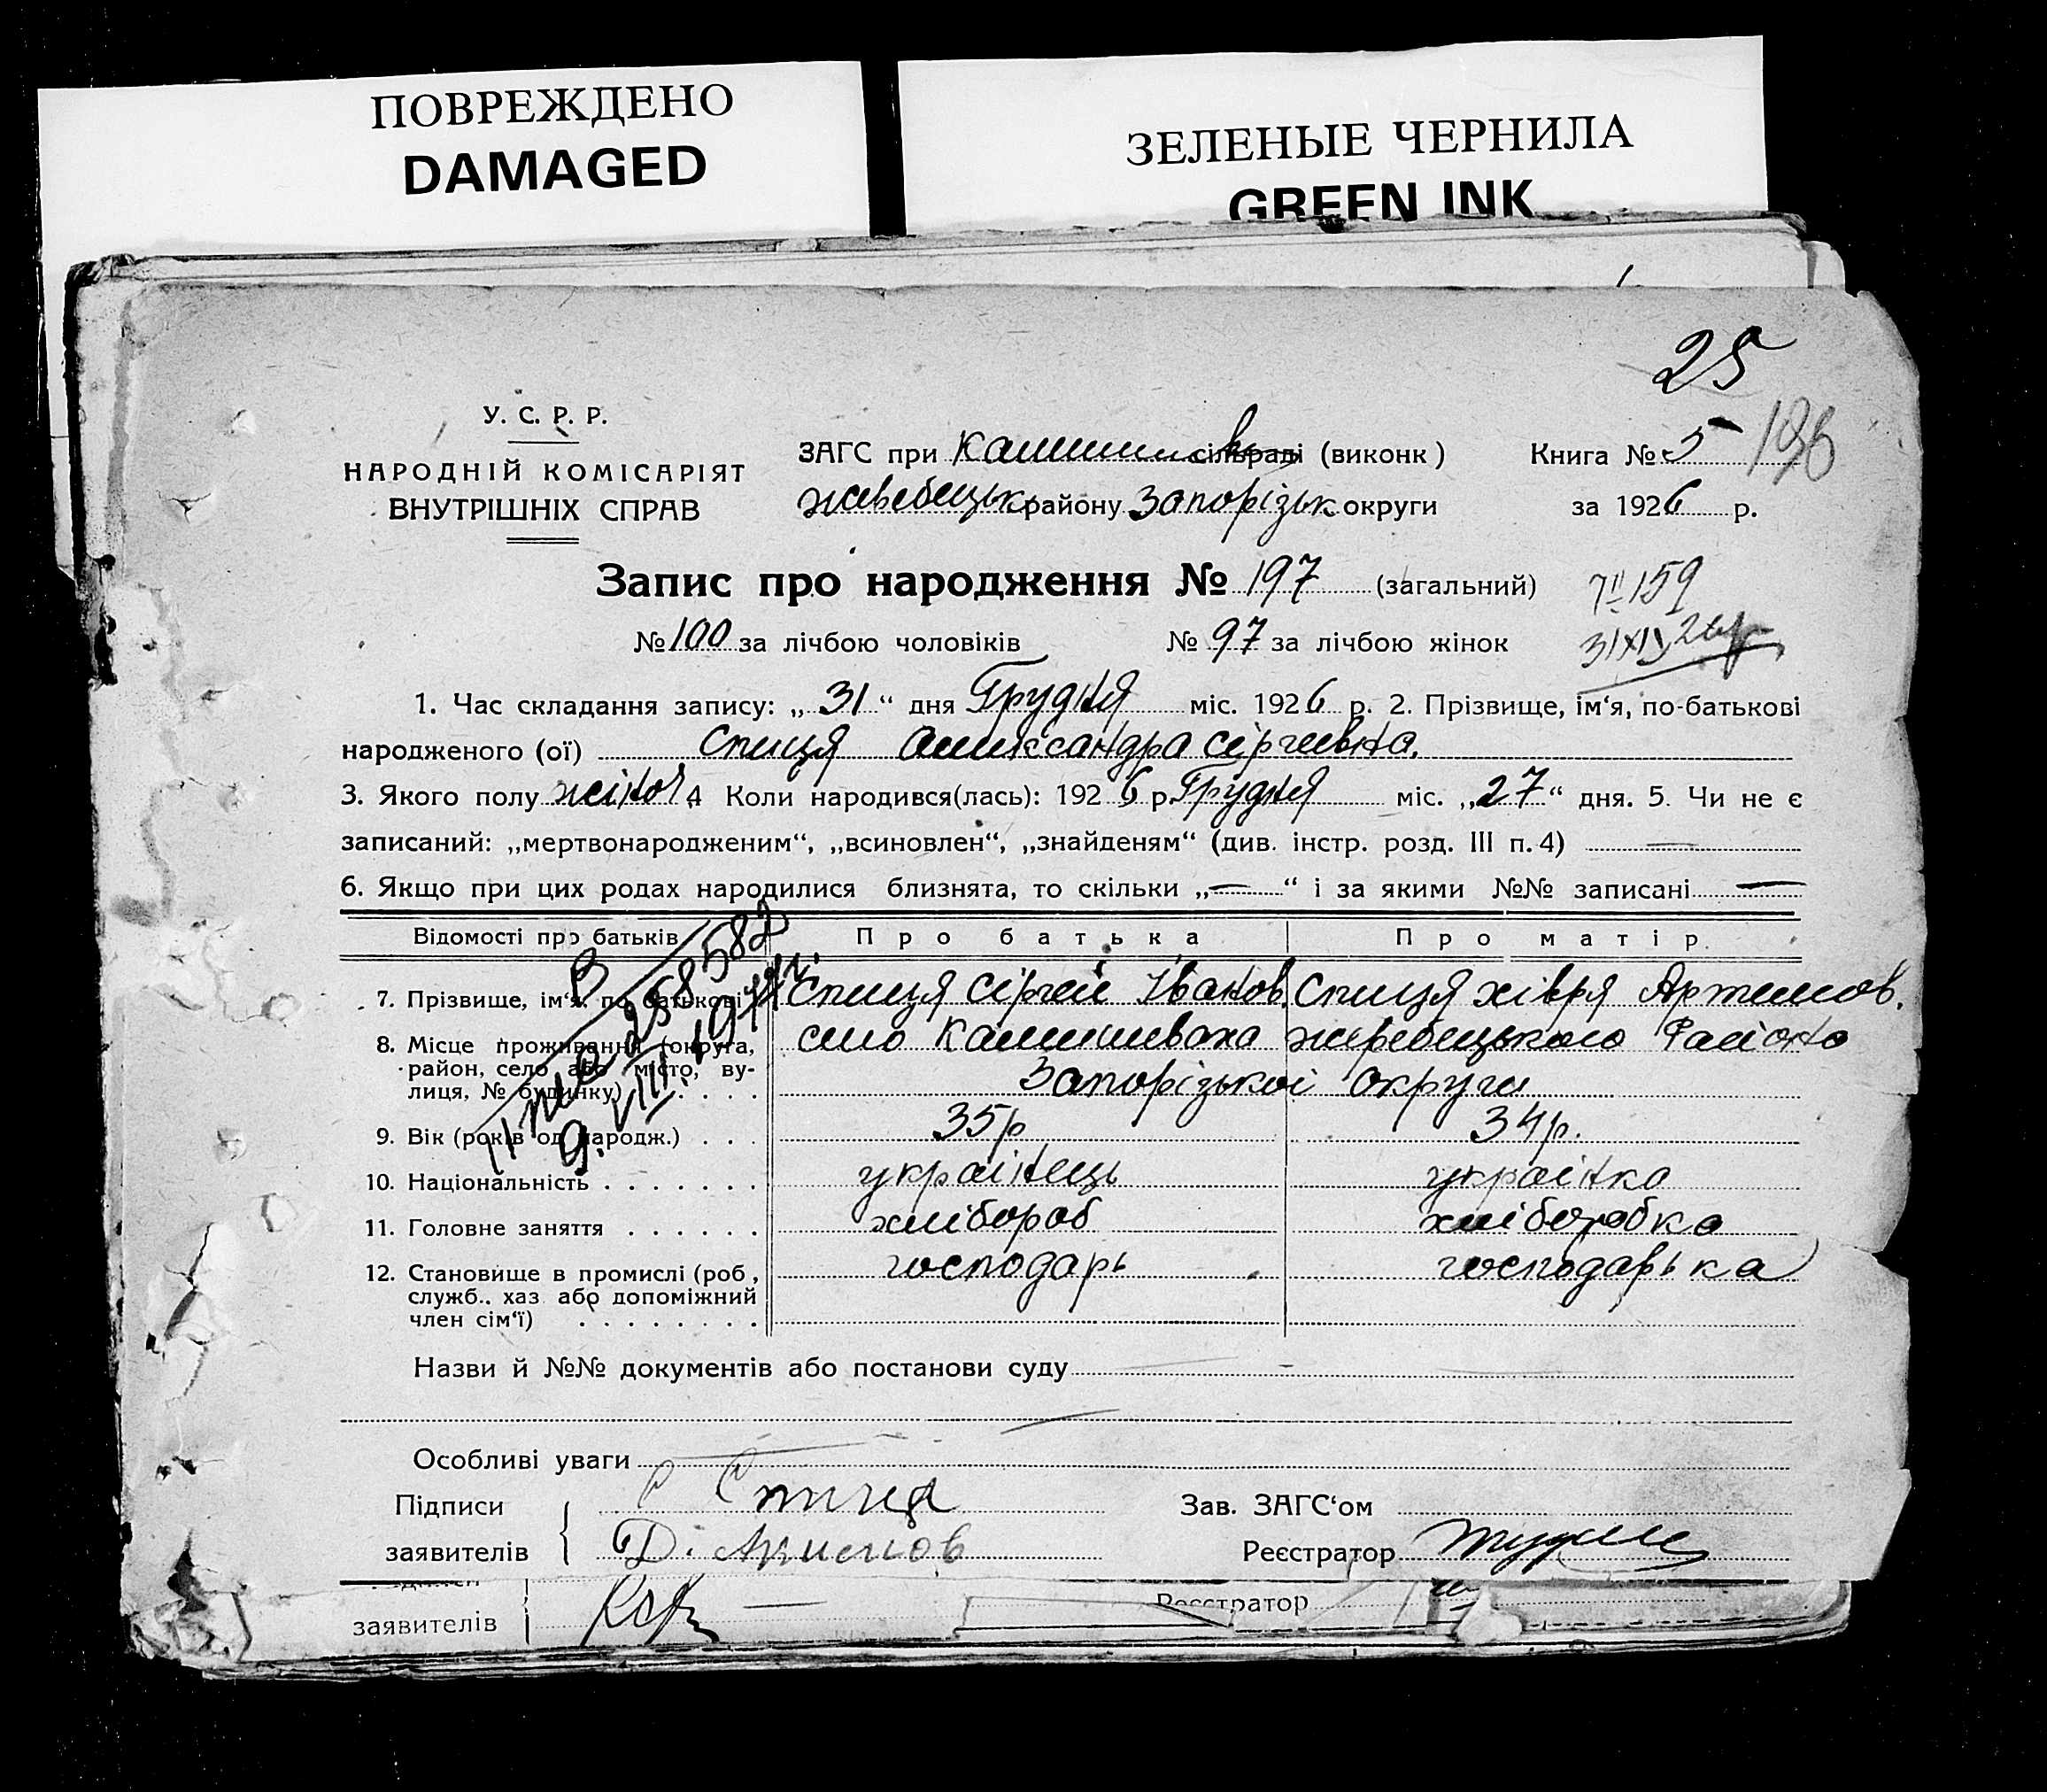 ПОВРЕЖДЕНО
DAMAGED
ЗЕЛЕНЫЕ ЧЕРНИЛА
GREEN INK
25
У. С. Р. Р.
НАРОДНІЙ КОМІСАРІЯТ
ВНУТРІШНІХ СПРАВ
ЗАГС при сільраді (виконк )
районy Запорізьк округи
Книга № 5
196
за 1926 р.
Запис про народження № 197 (загальний)
№ 100 за лічбою чоловіків № 97 за лічбою жінок
159
1. Час складання запису: „ 31 “ дня Грудня міс. 1926 р. 2. Прізвище, ім‘я, по-батькові
народженого (ої) Спиця Оликсандра Сергиевна.
3. Якого полу жіноч 4 Коли народився(лась): 1926 р. Грудня міс. „ 27 “ дня. 5. Чи не є
записаний: „мертвонародженим“, „всиновлен“, „знайденям“ (див. інстр. розд. III п. 4) —
6. Якщо при цих родах народилися близнята, то скільки „ — “ і за якими №№ записані —
Відомості про батьків Про батька Про матір.
7. Прізвище, ім‘я. по батькові Спиця Сергей Іванов. Спиця Хівря Артемов.
8. Місце проживання (округа, село Камишеваха жеребецького Району
район, село або місто, ву-
лиця, № будинку) . . . . Запорізької округи
9. Вік (років од народж.) . . . 35р 34р.
10. Національність . . . . . . . українець українка
11. Головне заняття . . . . . . хлібороб хліборобка
12. Становище в промислі (роб, господарь господарька
служб., хаз або допоміжний
член сім‘ї) . . . . . . . .
258582
9. VIII.
Назви й №№ документів або постанови суду
Особливі уваги
Підписи
заявителів
Спица
Зав. ЗАГС‘ом
Реєстратор
заявителів
Реєстратор